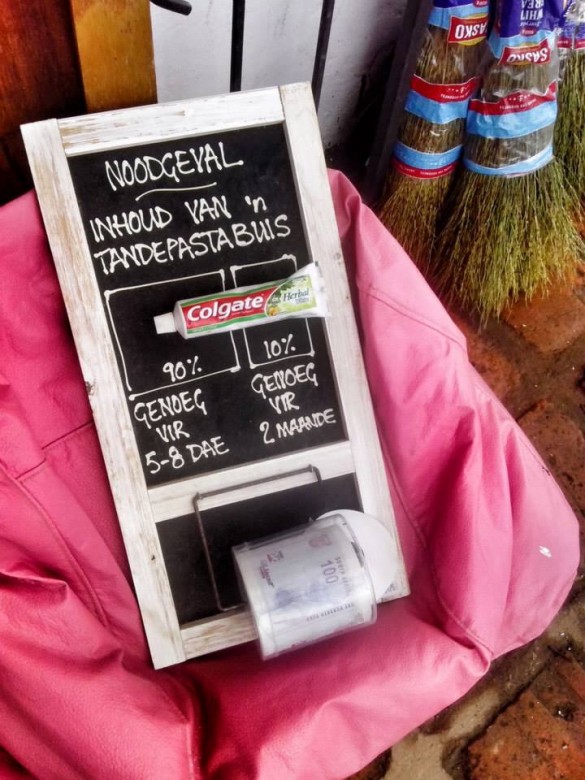 NOODGEVAL
INHOUD VAN 'n
TANDEPASTABUIS
Colgate Herbal
90%
10%
GENOEG
VIR
5-8 DAE
GENOEG
VIR
2 MAANDE
100
SASKO
SASKO